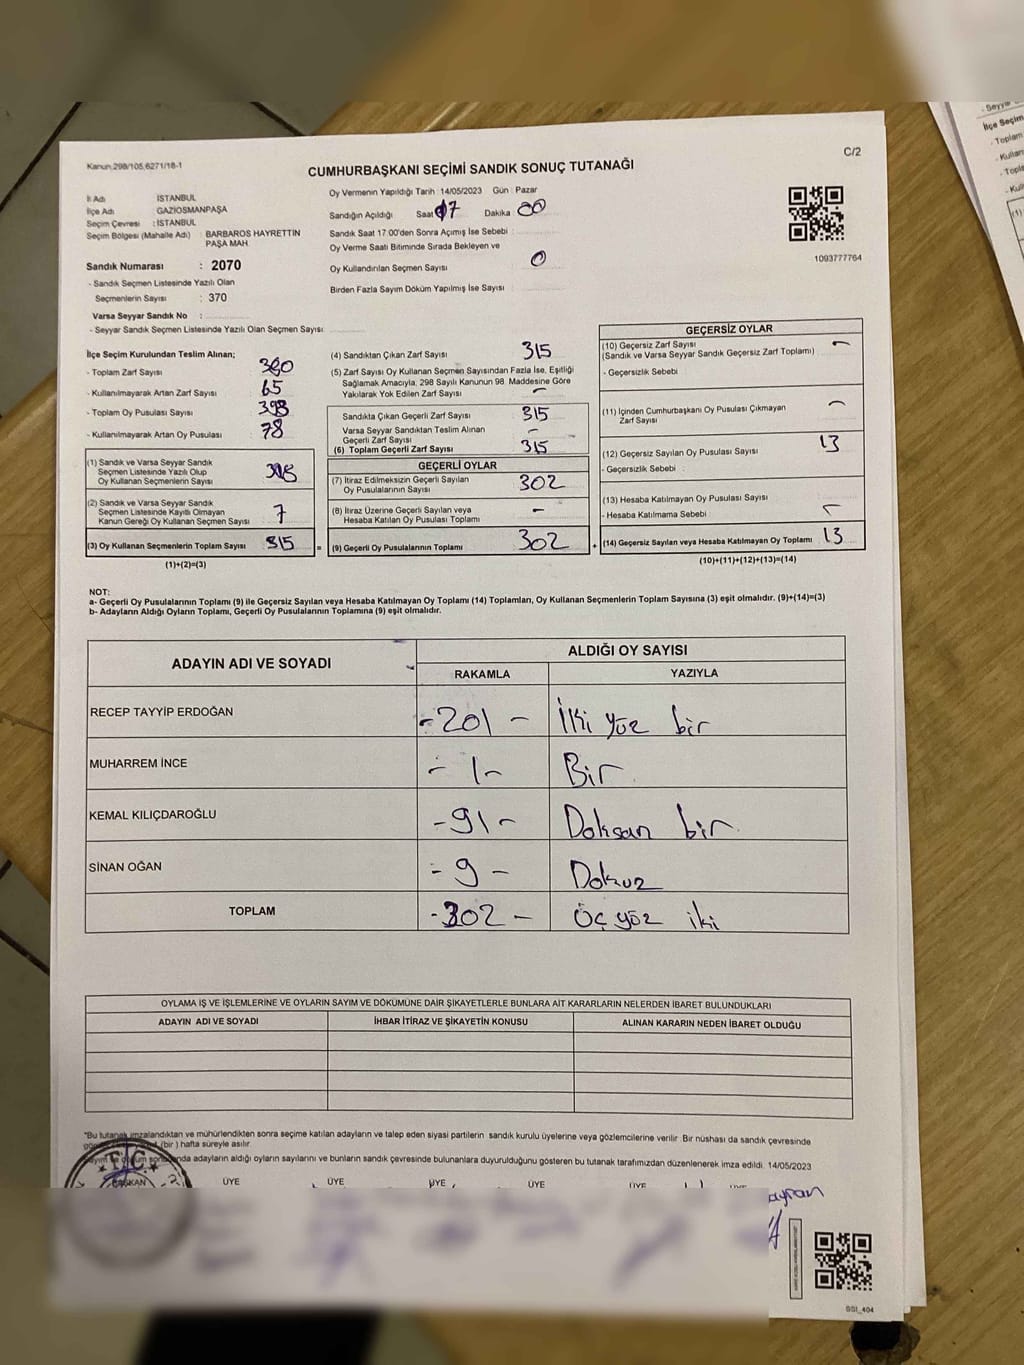 Kanun:298/105,6271/18-1
C/2
CUMHURBAŞKANI SEÇİMİ SANDIK SONUÇ TUTANAĞI
İl Adı İSTANBUL
İlçe Adı GAZİOSMANPAŞA
Seçim Çevresi : İSTANBUL
Seçim Bölgesi (Mahalle Adı) : BARBAROS HAYRETTİN PAŞA MAH.
Sandık Numarası : 2070
- Sandık Seçmen Listesinde Yazılı Olan
Seçmenlerin Sayısı : 370
Varsa Seyyar Sandık No :
- Seyyar Sandık Seçmen Listesinde Yazılı Olan Seçmen Sayısı:
Oy Vermenin Yapıldığı Tarih : 14/05/2023 Gün : Pazar
Sandığın Açıldığı Saat 17 Dakika : 00
Sandık Saat 17:00'den Sonra Açımış İse Sebebi :
Oy Verme Saati Bitiminde Sırada Bekleyen ve
Oy Kullandırılan Seçmen Sayısı 0
Birden Fazla Sayım Döküm Yapılmış İse Sayısı :
1093777764
İlçe Seçim Kurulundan Teslim Alınan;
- Toplam Zarf Sayısı 380
- Kullanılmayarak Artan Zarf Sayısı 65
- Toplam Oy Pusulası Sayısı 393
- Kullanılmayarak Artan Oy Pusulası 78
(1) Sandık ve Varsa Seyyar Sandık
Seçmen Listesinde Yazılı Olup
Oy Kullanan Seçmenlerin Sayısı
(2) Sandık ve Varsa Seyyar Sandık
Seçmen Listesinde Kayıtlı Olmayan
Kanun Gereği Oy Kullanan Seçmen Sayısı 7
(3) Oy Kullanan Seçmenlerin Toplam Sayısı 315 =
(1)+(2)=(3)
(4) Sandıktan Çıkan Zarf Sayısı 315
(5) Zarf Sayısı Oy Kullanan Seçmen Sayısından Fazla İse, Eşitliği
Sağlamak Amacıyla; 298 Sayılı Kanunun 98. Maddesine Göre
Yakılarak Yok Edilen Zarf Sayısı -
Sandıkta Çıkan Geçerli Zarf Sayısı 315
Varsa Seyyar Sandıktan Teslim Alınan
Geçerli Zarf Sayısı -
(6) Toplam Geçerli Zarf Sayısı 315
GEÇERLİ OYLAR
(7) İtiraz Edilmeksizin Geçerli Sayılan
Oy Pusulalarının Sayısı 302
(8) İtiraz Üzerine Geçerli Sayılan veya
Hesaba Katılan Oy Pusulası Toplamı -
(9) Geçerli Oy Pusulalarının Toplamı 302 +
GEÇERSİZ OYLAR
(10) Geçersiz Zarf Sayısı -
(Sandık ve Varsa Seyyar Sandık Geçersiz Zarf Toplamı)
- Geçersizlik Sebebi
(11) İçinden Cumhurbaşkanı Oy Pusulası Çıkmayan
Zarf Sayısı -
(12) Geçersiz Sayılan Oy Pusulası Sayısı 13
- Geçersizlik Sebebi :
(13) Hesaba Katılmayan Oy Pusulası Sayısı
- Hesaba Katılmama Sebebi : -
(14) Geçersiz Sayılan veya Hesaba Katılmayan Oy Toplamı 13
(10)+(11)+(12)+(13)=(14)
NOT:
a- Geçerli Oy Pusulalarının Toplamı (9) ile Geçersiz Sayılan veya Hesaba Katılmayan Oy Toplamı (14) Toplamları, Oy Kullanan Seçmenlerin Toplam Sayısına (3) eşit olmalıdır. (9)+(14)=(3)
b- Adayların Aldığı Oyların Toplamı, Geçerli Oy Pusulalarının Toplamına (9) eşit olmalıdır.
ADAYIN ADI VE SOYADI
ALDIĞI OY SAYISI
RAKAMLA YAZIYLA
RECEP TAYYİP ERDOĞAN -201- İki yüz bir
MUHARREM İNCE -1- Bir
KEMAL KILIÇDAROĞLU -91- Doksan bir
SİNAN OĞAN -9- Dokuz
TOPLAM -302- Üç yüz iki
OYLAMA İŞ VE İŞLEMLERİNE VE OYLARIN SAYIM VE DÖKÜMÜNE DAİR ŞİKAYETLERLE BUNLARA AİT KARARLARIN NELERDEN İBARET BULUNDUKLARI
ADAYIN ADI VE SOYADI İHBAR İTİRAZ VE ŞİKAYETİN KONUSU ALINAN KARARIN NEDEN İBARET OLDUĞU
*Bu tutanak imzalandıktan ve mühürlendikten sonra seçime katılan adayların ve talep eden siyasi partilerin sandık kurulu üyelerine veya gözlemcilerine verilir. Bir nüshası da sandık çevresinde
(bir) hafta süreyle asılır.
adayların aldığı oyların sayılarını ve bunların sandık çevresinde bulunanlara duyurulduğunu gösteren bu tutanak tarafımızdan düzenlenerek imza edildi. 14/05/2023
T.C.
BAŞKAN ÜYE ÜYE ÜYE ÜYE
SSI_404
İlçe Seçim
- Toplam
- Kullan